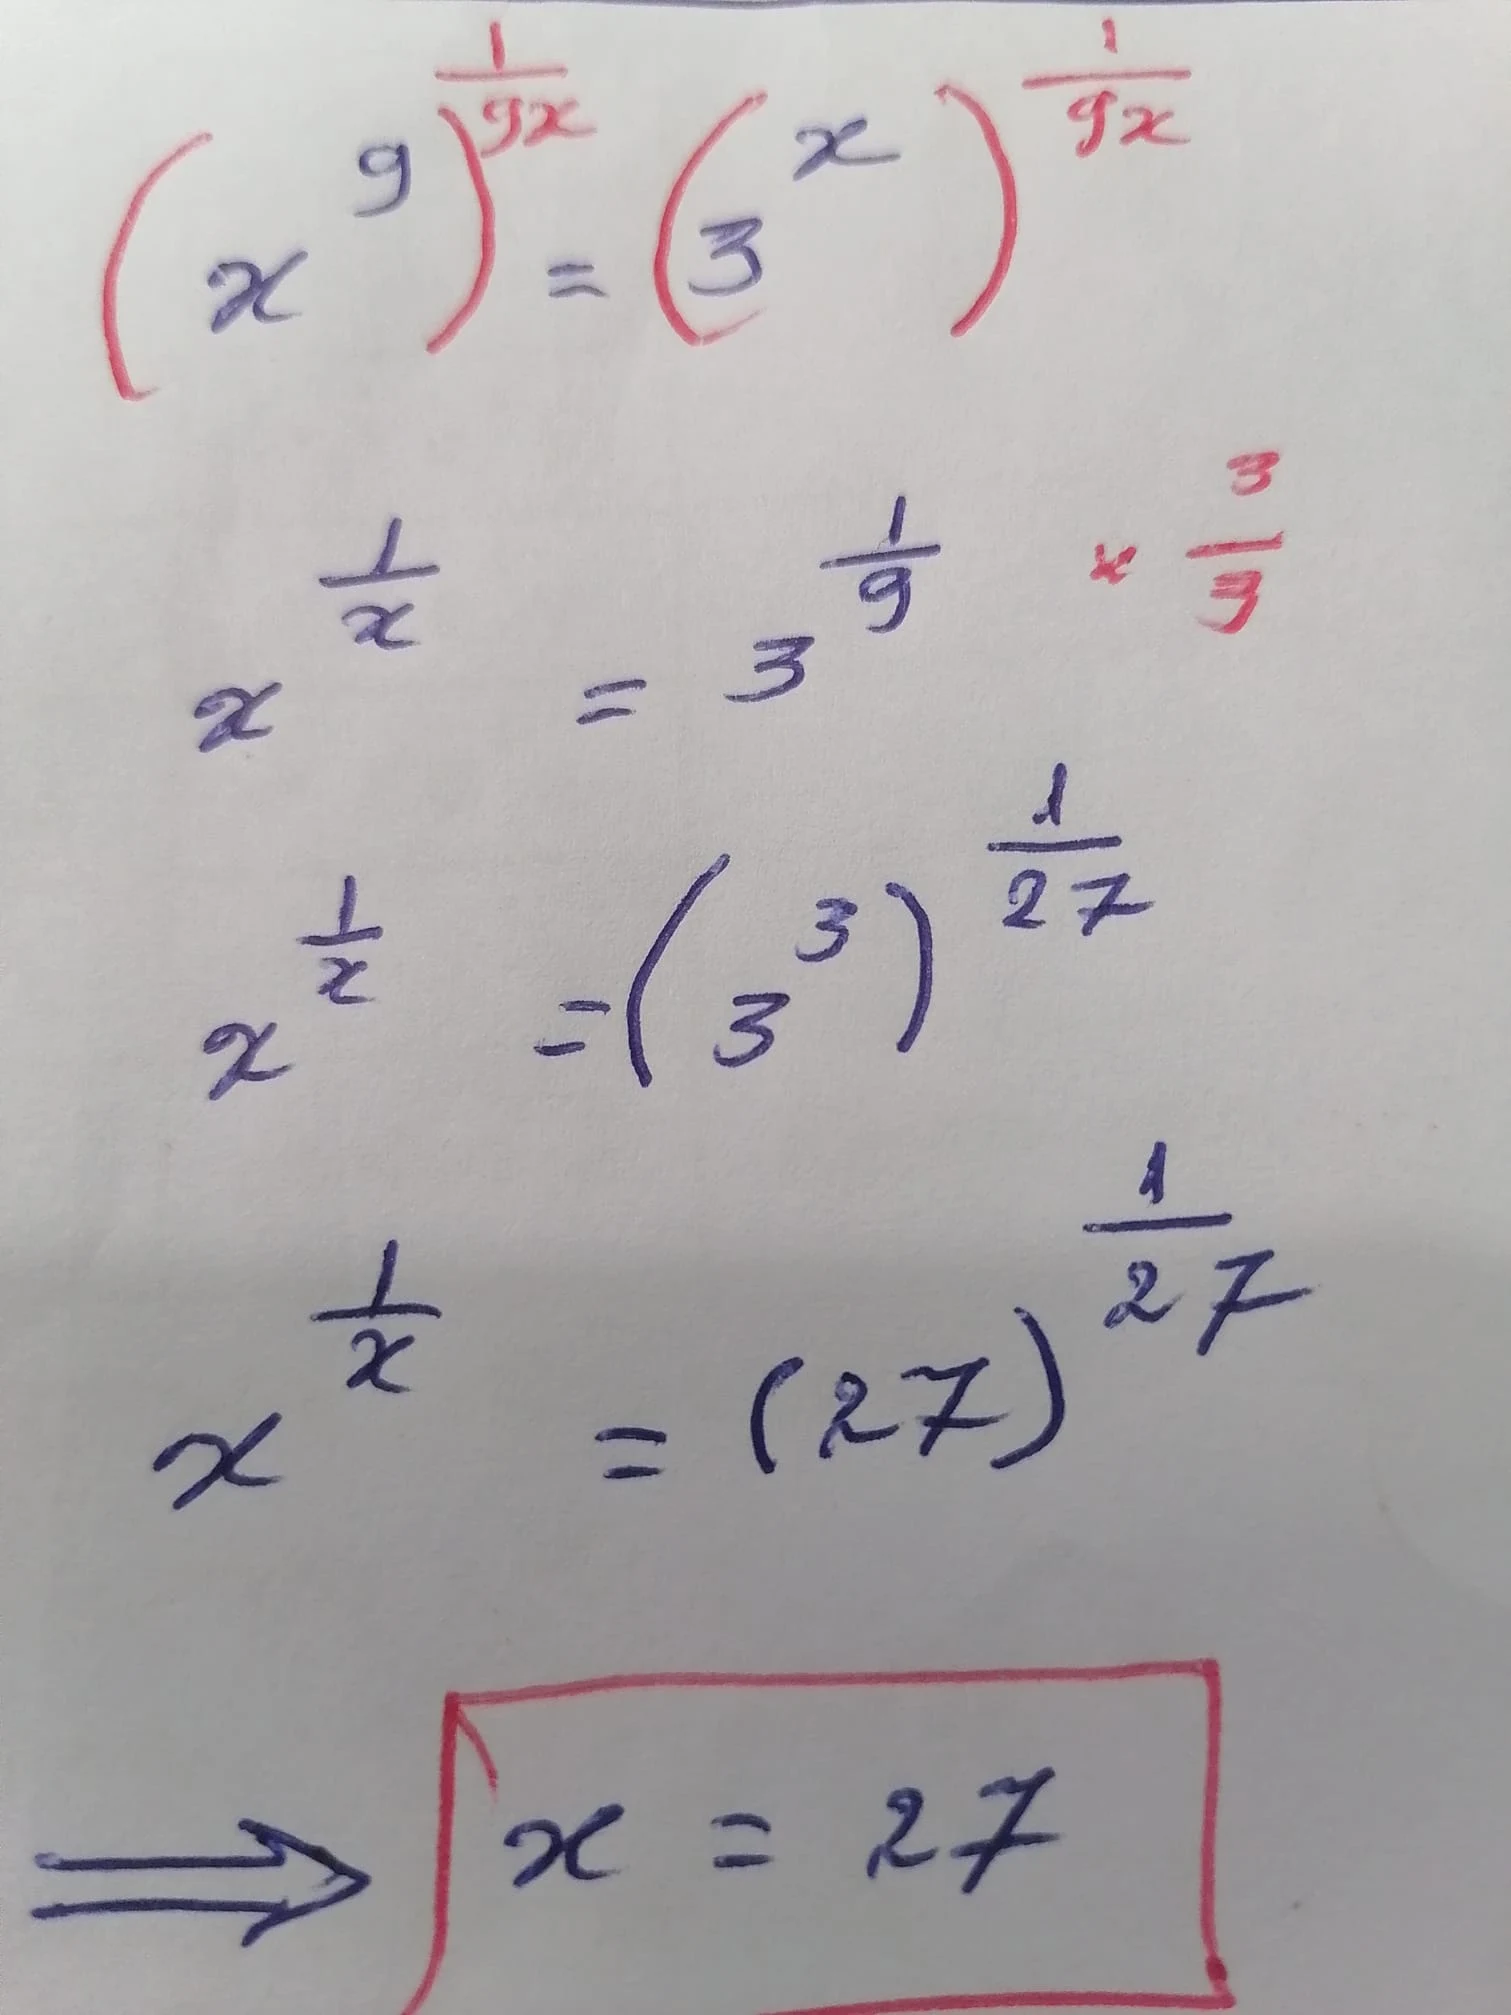 (x^9)^(1/9x) = (3^x)^(1/9x)
x^(1/x) = 3^(1/9) × 3/3
x^(1/x) = (3^3)^(1/27)
x^(1/x) = (27)^(1/27)
⟹ x = 27